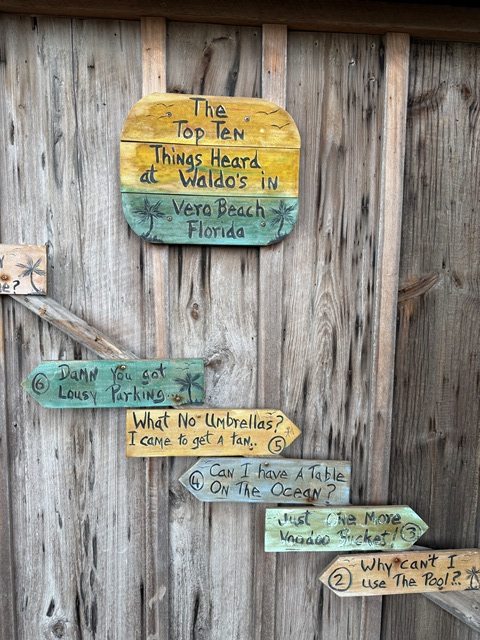 The
Top Ten
Things Heard
at Waldo's in
Vero Beach
Florida
e?
6 Damn You got
Lousy Parking...
What No Umbrellas?
I came to get a tan.. 5
4 Can I have A Table
On The Ocean?
Just One More
Voodoo Bucket! 3
2 Why can't I
use The Pool?..